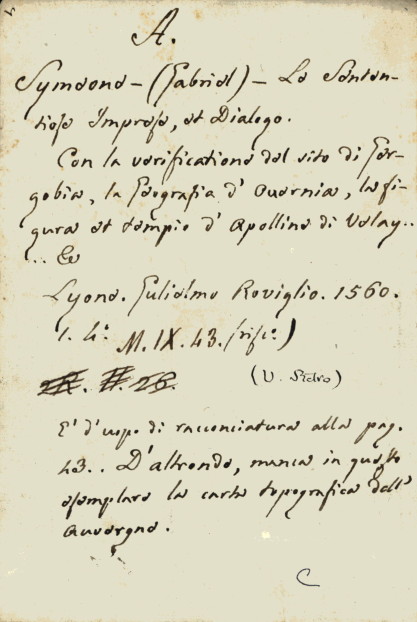 A.
Symeone - (Gabriel) - Le Senten-
tiose Imprese, et Dialogo.
Con la verificatione del sito di Ger-
gobia, la Geografia d' Overnia, la fi-
gura et tempio d' Apolline di Velay..
.. &
Lyone. Gulielmo Roviglio. 1560.
1. 4.º M. IX. 43.
(V. Dietro)
E' d'uopo di racconciatura alla pag.
43.. D'altronde, manca in questo
esemplare la carta topografica dell'
Auvergne.
C